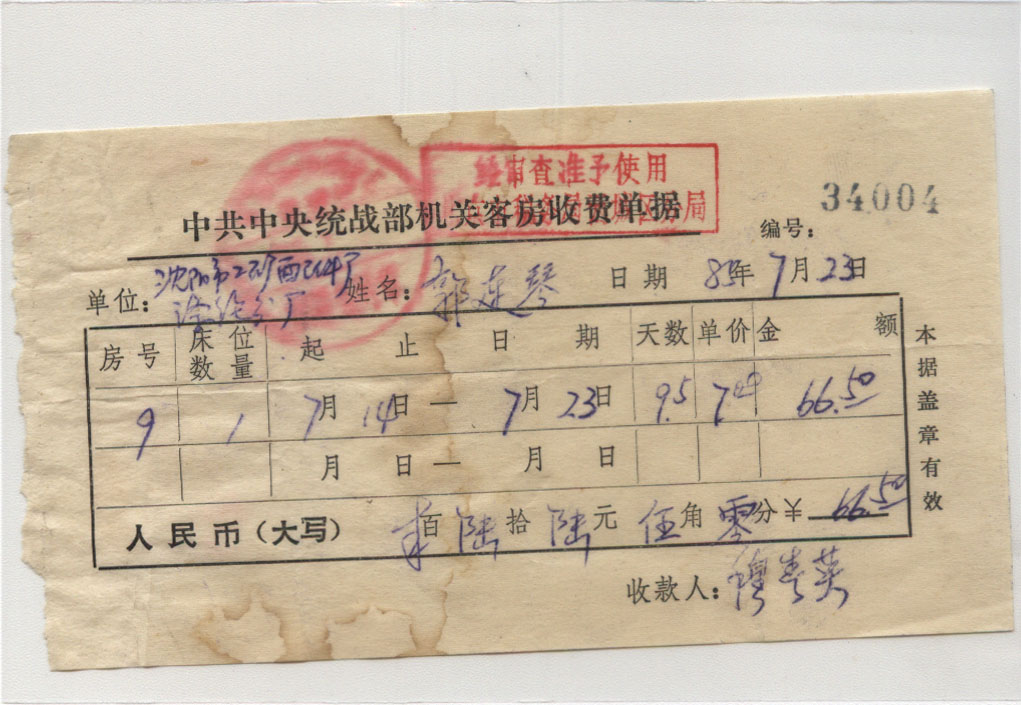 经审查准予使用
34004
中共中央统战部机关客房收费单据
编号:
单位: 沈阳市 姓名: 郭连琴 日期 85年7月23日
房号 床位数量 起止日期 天数 单价 金额
9 1 7月14日—7月23日 9.5 7.00 66.50
月 日— 月 日
人民币(大写) 百陆拾陆元伍角零分¥66.50
收款人: 穆秀英
本据盖章有效